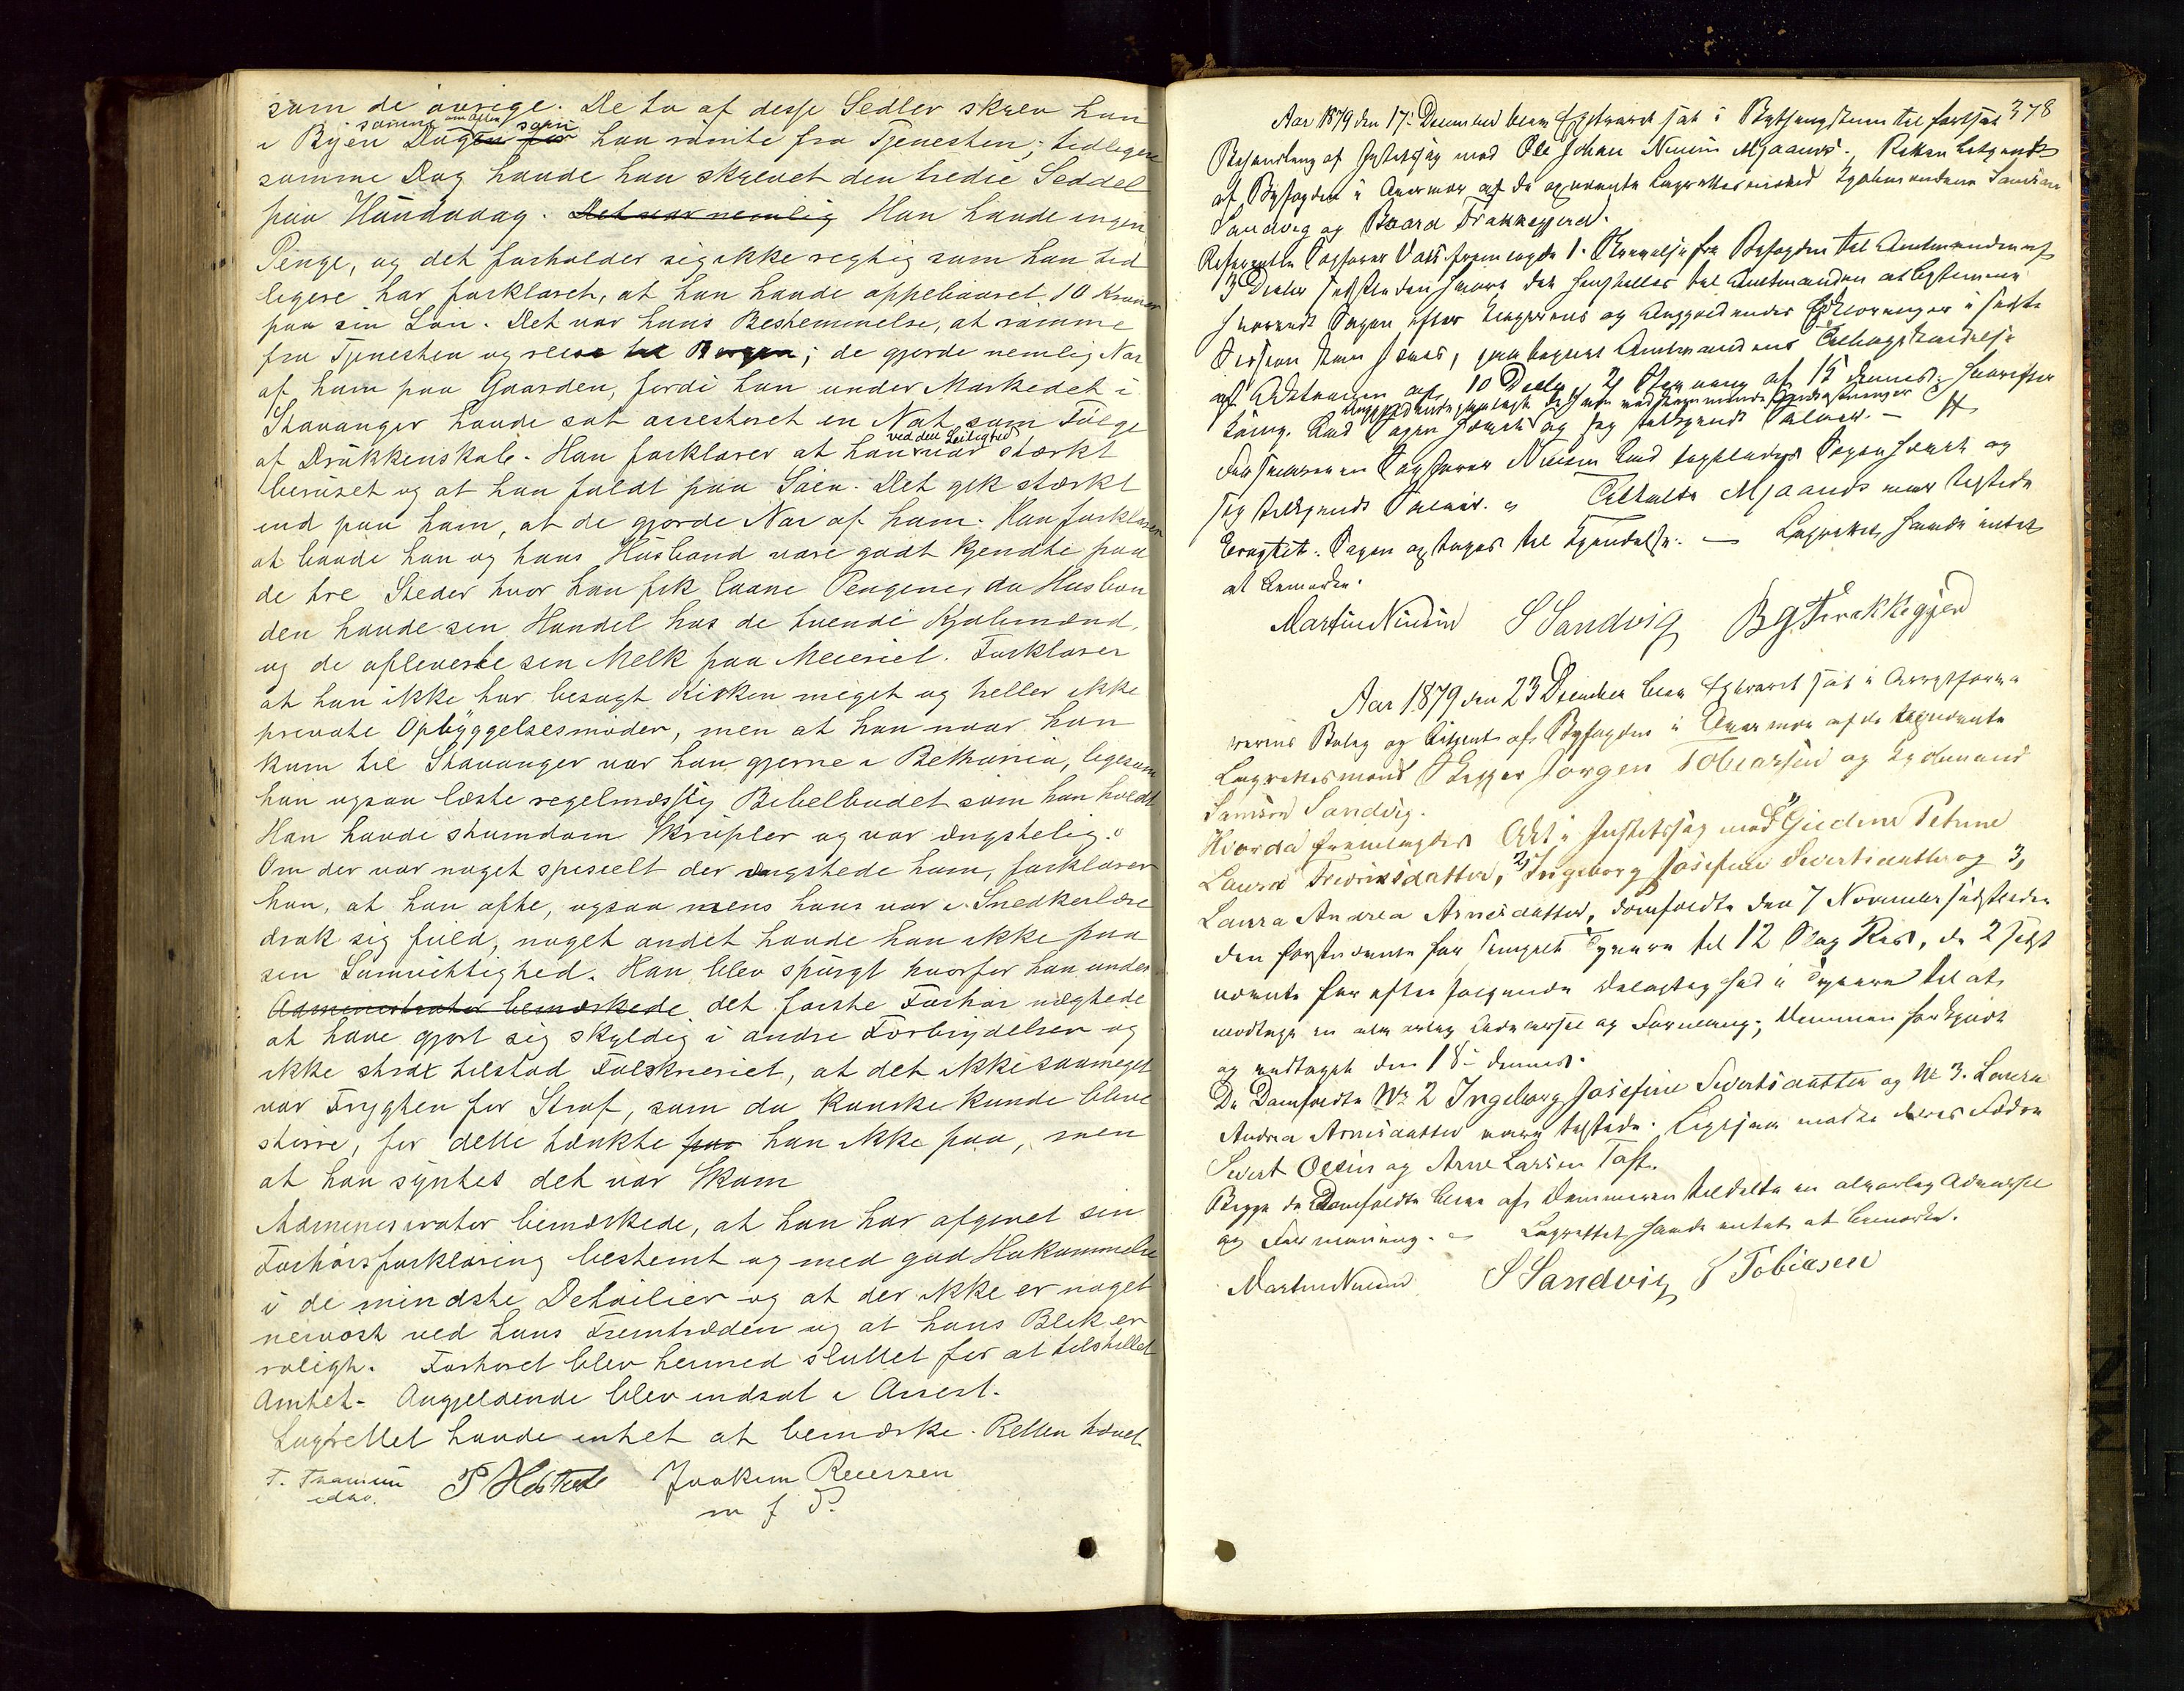 som de øvrige. De to af disse Sedler skrev han
i Byen samme Dag som han rømte fra Tjenesten; tidligere
samme Dag havde han skrevet den tredie Seddel
paa Haanda. Det var nemlig Han havde ingen
Penge, og det forholder sig ikke rigtig som han tid
ligere har forklaret, at han havde oppebaaret 10 Kroner
paa sin Løn. Det var hans Bestemmelse, at rømme
fra Tjenesten og reise til Bergen; de gjorde nemlig Nar
af ham paa Gaarden, fordi han under Markedet i
Stavanger havde sat arresteret en Nat som Følge
af Drukkenskab. Han forklarer at han ved den Leilighed var stærkt
beruset og at han faldt paa Søen. Det gik stærkt
ind paa ham, at de gjorde Nar af ham. Han forklarer
at baade han og hans Husbond vare godt kjendte paa
de tre Steder hvor han fik laane Pengene, da Husbon
den havde sin Handel hos de tvende Kjøbmænd,
og de afleverte sin Melk paa Meieriet. Forklarer
at han ikke har besøgt Kirken meget og heller ikke
private Opbyggelsesmøder, men at han naar han
kom til Stavanger var han gjerne i Bethania, ligesom
han ogsaa læste regelmæssig Bibelbudet som han holdt
Han havde stundom Skrupler og var ængstelig.
Om der var noget specielt der ængstede ham, forklarer
han, at han ofte, ogsaa mens hans var i Snedkerlære
drak sig fuld, noget andet havde han ikke paa
sin Samvittighed. Han blev spurgt hvorfor han under
Administrator bemærkede det første Forhør nægtede
at have gjort sig skyldig i andre Forbrydelser og
ikke strax tilstod Falskneriet, at det ikke saameget
var Frygten for Straf, som da kanske kunde blive
større, for dette tænkte han ikke paa, men
at han syntes det var Skam
Administrator bemærkede, at han har afgivet sin
Forhørsforklaring bestemt og med god Hukommelse
i de mindste Detailier og at der ikke er noget
nervøst ved hans Fremtræden og at hans Blik er
roligt. Forhøret blev hermed sluttet for at tilstilles
Amtet. Angjeldende blev indsat i Arrest.
Lagrettet havde intet at bemærke. Retten hævet.
P Hostrede Joakim Reiersen
m f P.
378
Aar 1879 den 17. December blev Extraret sat i Bythingstuen til fortsat
Behandling af Justitssag mod Ole Johan Mjaanes. Retten betjent
af Byfogden i Overvær af de opnævnte Lagrettesmænd Kjøbmændene Samson
Sandvig og Baard Trækkegjerd.
Referentte Sagfører fremlagde 1. Skrivelse fra Byfogden til Amtmanden af
3 Decbr sidstleden hvori det henstilles til Amtmanden at bestemme
hvorvidt Sagen efter og Angjeldendes Erklæringer i sidste
Session kan, paategnet Amtmandens Tilbagesendelse
af 10 Decbr,
Sagen og tilkjendt Salær.
Forsvareren Sagfører Nielsen Sagen og
tilkjendt Salær. Tiltalte Mjaanes var tilstede
Sagen optages til Kjendelse. Lagrettet havde intet
at bemærke.
S Sandvig B G Trækkegjerd
Aar 1879 den 23 December blev Extraret sat i Arrestforva
rerens Bolig og betjent af Byfogden i Overvær af de opnævnte
Lagrettesmænd Skipper Jørgen Tobiassen og Kjøbmand
Samson Sandvig.
Hvorda fremlagdes Akt i Justitssag mod 1, Gudine Petrine
Laura Fredriksdatter, 2, Ingeborg Josefine Sivertsdatter og 3,
Laura Andrea Arnesdatter, domfældte den 7 November sidstleden
den førstnævnte for simpelt Tyveri til 12 Slag Ris, de 2 sidst
nævnte for efterfølgende Delagtighed i Tyveri til at
modtage en alvorlig Advarsel og Formaning; Dommen forkyndt
og vedtaget den 18. dennes.
De Domfældte No 2 Ingeborg Josefine Sivertsdatter og No 3. Laura
Andrea Arnesdatter vare tilstede. Ligesaa mødte deres Fædre
Sivert Olsen og Arne Larsen Toft.
Begge de Domfældte bleve af Dommeren tildelte en alvorlig Advarsel
og Formaning. Lagrettet havde intet at bemærke.
S Sandvig J Tobiasen